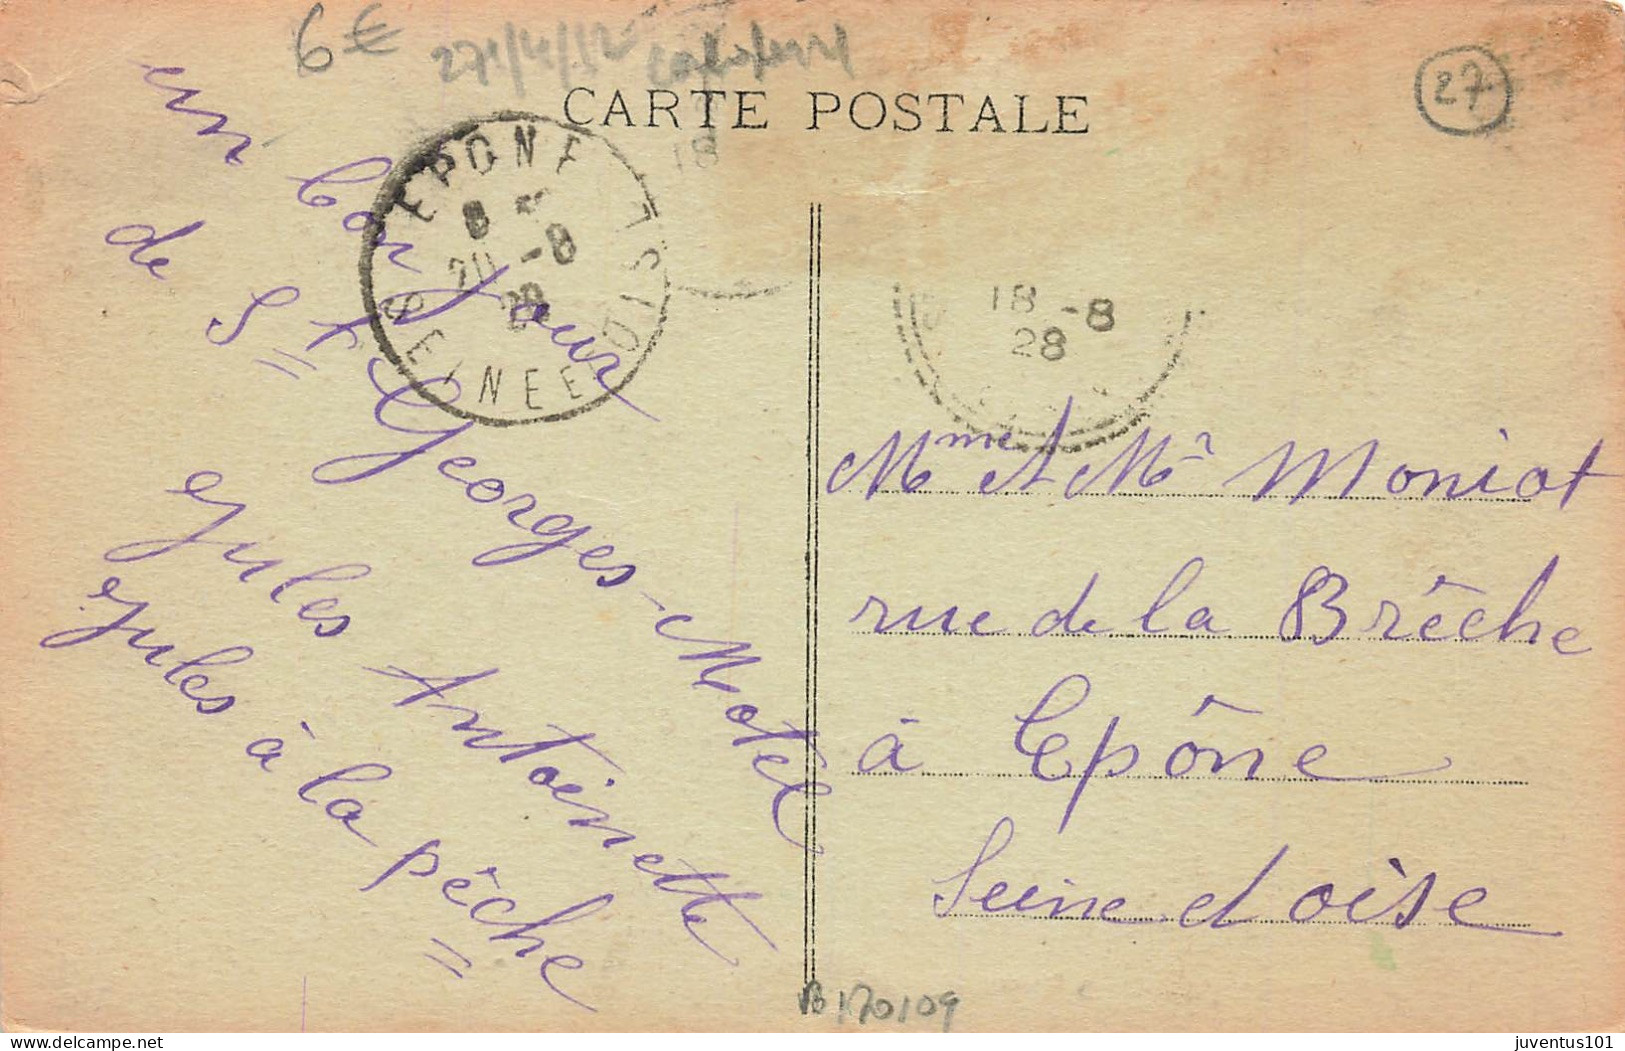 6€
27
CARTE POSTALE
EPONE
8
20 -8
28
SEINE ET OISE
18
18 -8
28
un bonjour
de St Georges-Motel
Jules Antoinette
Jules à la pêche
Mme et Mr Moniot
rue de la Brêche
à Epône
Seine et oise
B170109
juventus101